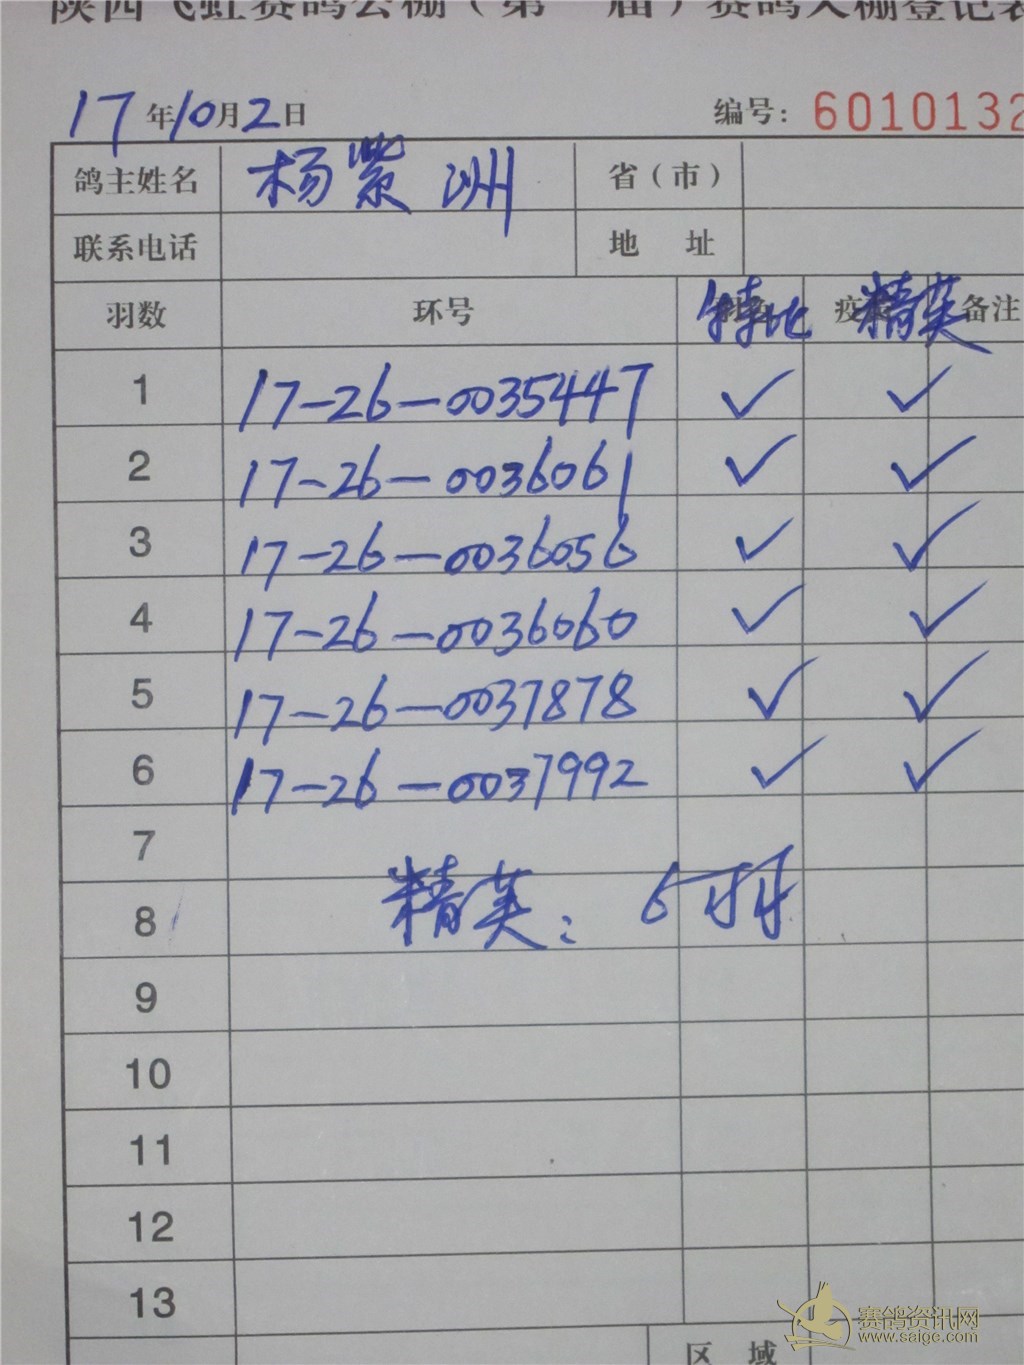 陕西飞虹赛鸽公棚（第 届）赛鸽入棚登记表
17年10月2日 编号：6010132
鸽主姓名 杨紫洲 省（市）
联系电话 地 址
羽数 环号 特比 精英 备注
1 17-26-0035447 ✓ ✓
2 17-26-0036061 ✓ ✓
3 17-26-0036056 ✓ ✓
4 17-26-0036060 ✓ ✓
5 17-26-0037878 ✓ ✓
6 17-26-0037992 ✓ ✓
7
8 精英：6羽
9
10
11
12
13
区 域
赛鸽资讯网
www.saige.com